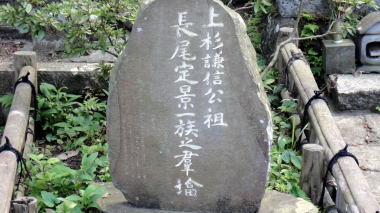 上杉謙信公祖
長尾定景一族之群墖